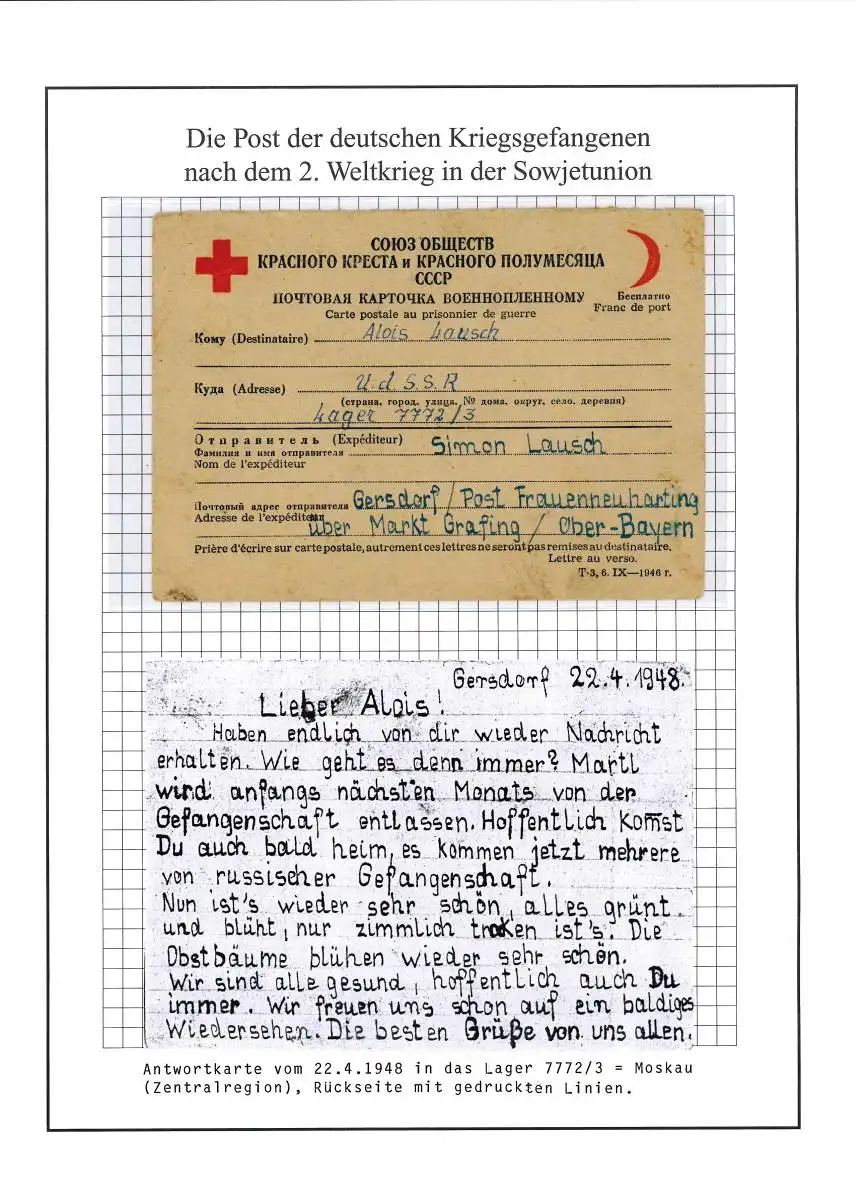 Die Post der deutschen Kriegsgefangenen
nach dem 2. Weltkrieg in der Sowjetunion
СОЮЗ ОБЩЕСТВ
КРАСНОГО КРЕСТА и КРАСНОГО ПОЛУМЕСЯЦА
СССР
ПОЧТОВАЯ КАРТОЧКА ВОЕННОПЛЕННОМУ
Carte postale au prisonnier de guerre
Бесплатно
Franc de port
Кому (Destinataire) Alois Lausch
Куда (Adresse) U d S.S.R
(страна, город, улица, № дома, округ, село, деревня)
Lager 7772/3
Отправитель (Expéditeur) Simon Lausch
Фамилия и имя отправителя
Nom de l'expéditeur
Почтовый адрес отправителя Gersdorf / Post Frauenneuharting
Adresse de l'expéditeur über Markt Grafing / Ober-Bayern
Prière d'écrire sur carte postale, autrement ces lettres ne seront pas remises au destinataire.
Lettre au verso.
Т-3, 6. IX—1946 г.
Gersdorf 22.4.1948.
Lieber Alois!
Haben endlich von dir wieder Nachricht
erhalten. Wie geht es denn immer? Martl
wird anfangs nächsten Monats von der
Gefangenschaft entlassen. Hoffentlich kom̅st
Du auch bald heim, es kommen jetzt mehrere
von russischer Gefangenschaft.
Nun ist's wieder sehr schön, alles grünt
und blüht, nur zimmlich troken ist's. Die
Obstbäume blühen wieder sehr schön.
Wir sind alle gesund, hoffentlich auch Du
immer. Wir freuen uns schon auf ein baldiges
Wiedersehen. Die besten Grüße von uns allen.
Antwortkarte vom 22.4.1948 in das Lager 7772/3 = Moskau
(Zentralregion), Rückseite mit gedruckten Linien.